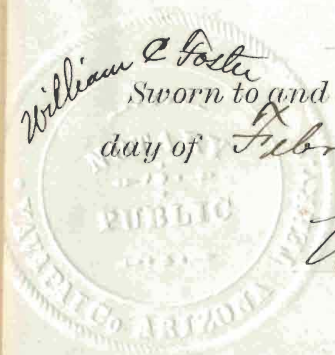 William C Foster
Sworn to and
day of Febr
NOTARY
PUBLIC
YAVAPAI Co ARIZONA TERR